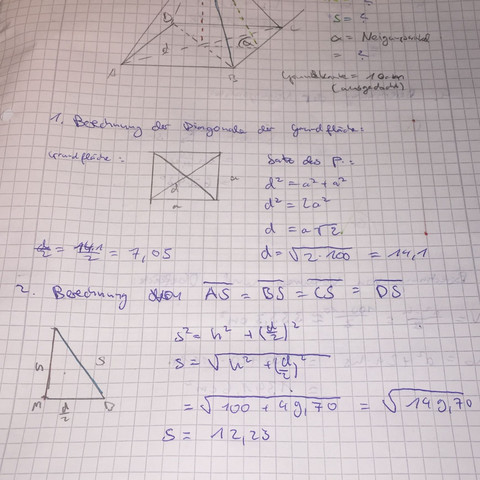 D C
A B
d α
s = ?
α = Neigungswinkel
= ?
Grundkante = 10 cm
(ausgedacht)
1. Berechnung der Diagonale der Grundfläche:
Grundfläche:
d
a
a
Satz des P.:
d² = a² + a²
d² = 2a²
d = a√2
d = √2·100 = 14,1
d/2 = 14,1/2 = 7,05
2. Berechnung von AS = BS = CS = DS
s² = h² + (d/2)²
s = √h² + (d/2)²
= √100 + 49,70 = √149,70
s = 12,23
h s
M d/2 B